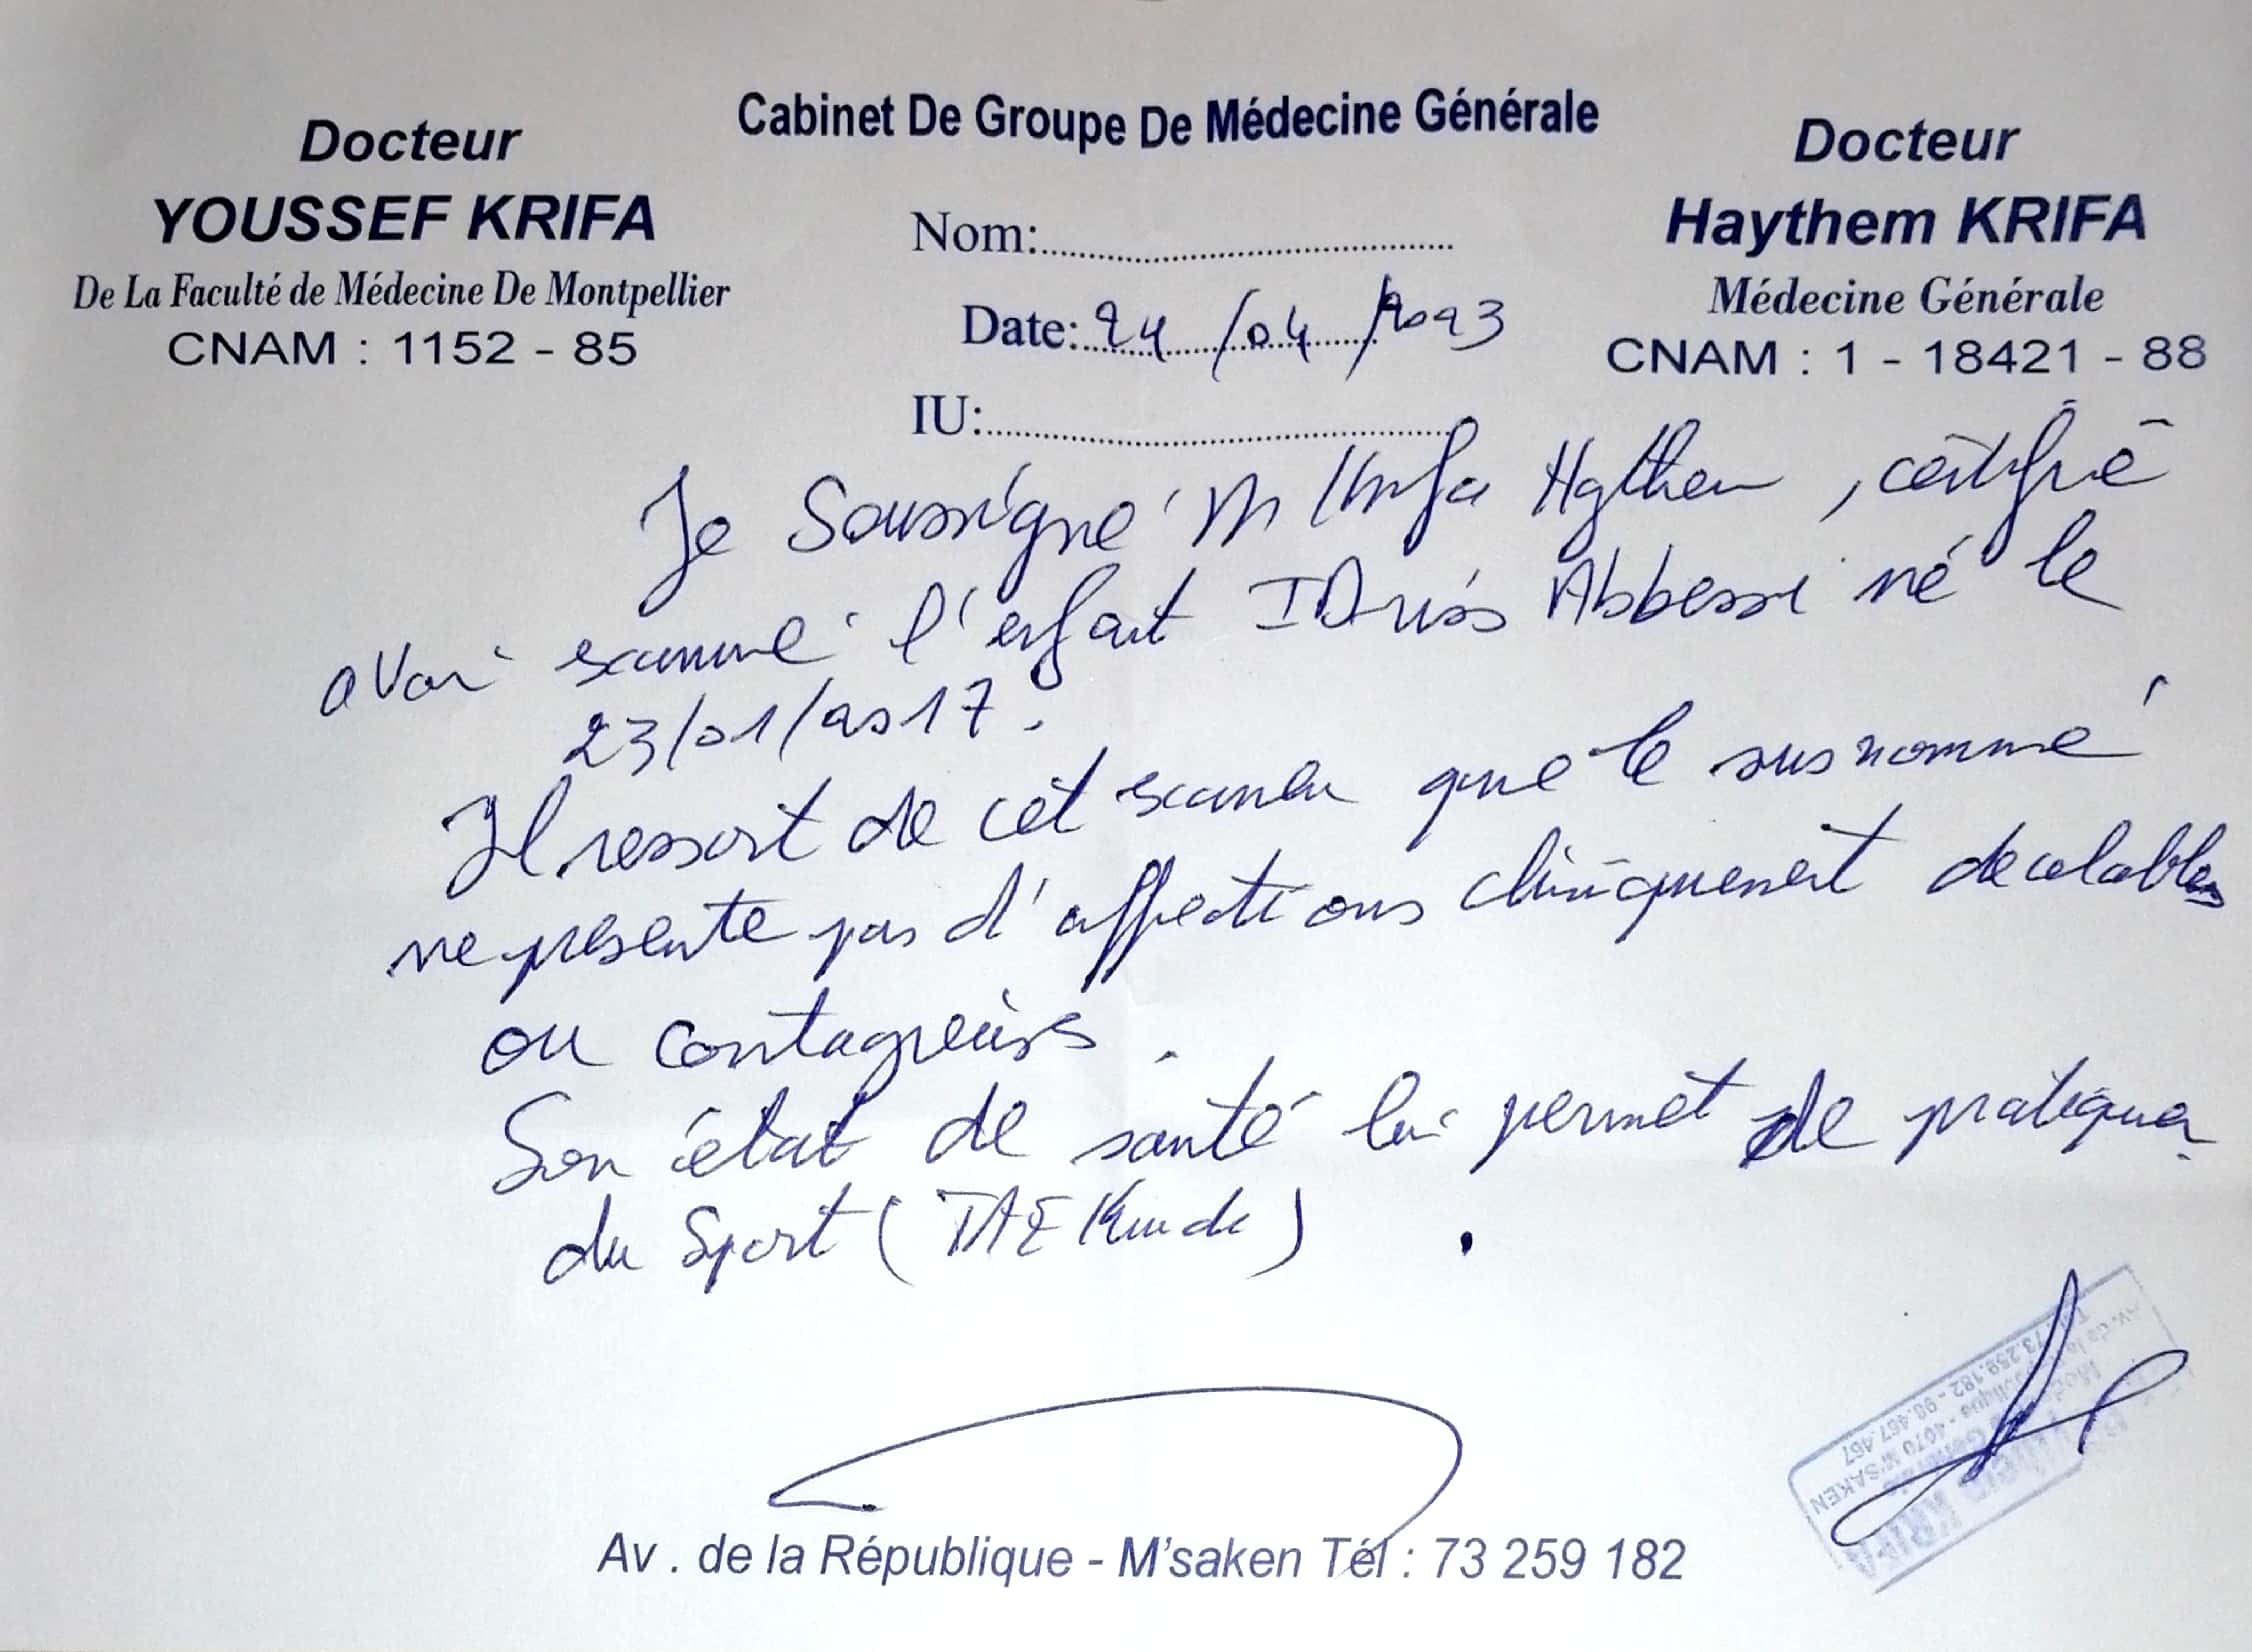 Cabinet De Groupe De Médecine Générale
Docteur
YOUSSEF KRIFA
De La Faculté de Médecine De Montpellier
CNAM : 1152 - 85
Docteur
Haythem KRIFA
Médecine Générale
CNAM : 1 - 18421 - 88
Nom:
Date: 24/04/2023
IU:
Je Soussigné M Krifa Hythem, certifie
avoir examiné l'enfant IDriss Abbessi né le
23/01/2017.
Il ressort de cet examen que le susnommé
ne présente pas d'affections cliniquement décelables
ou contagieuses.
Son état de santé lui permet de pratiquer
du Sport (TAEKwndo).
Av . de la République - M'saken Tél : 73 259 182
KRIFA
Av. de la République - 4070 M'SAKEN
Tél : 73.259.182 - 98.467.467